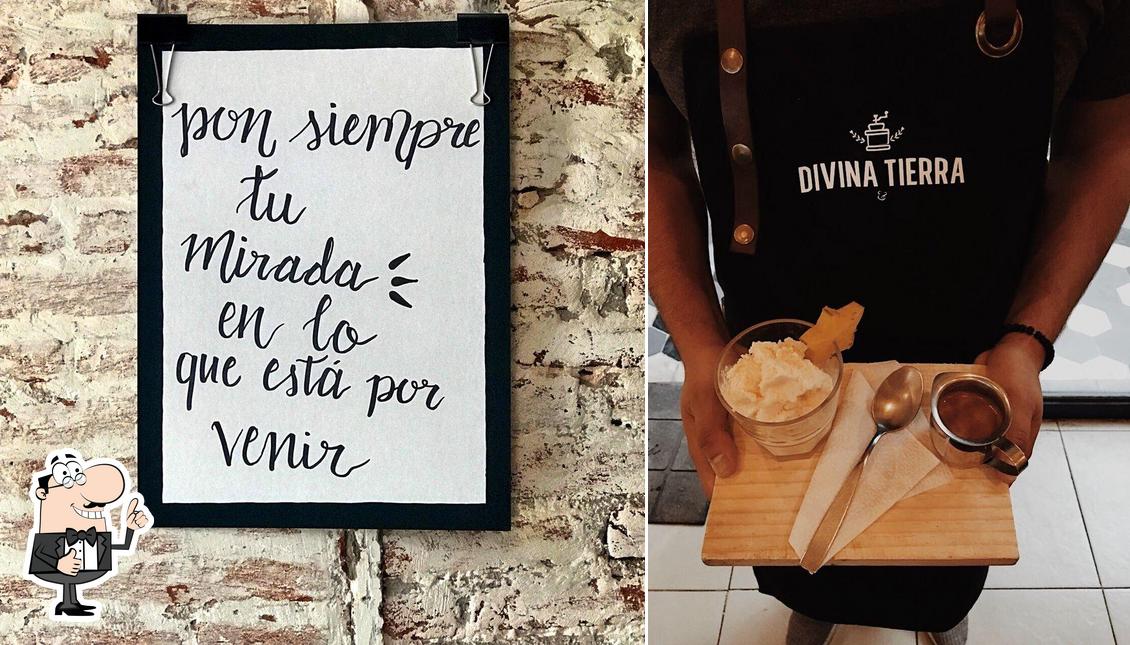 pon siempre
tu
mirada
en lo
que está por
venir
DIVINA TIERRA
&